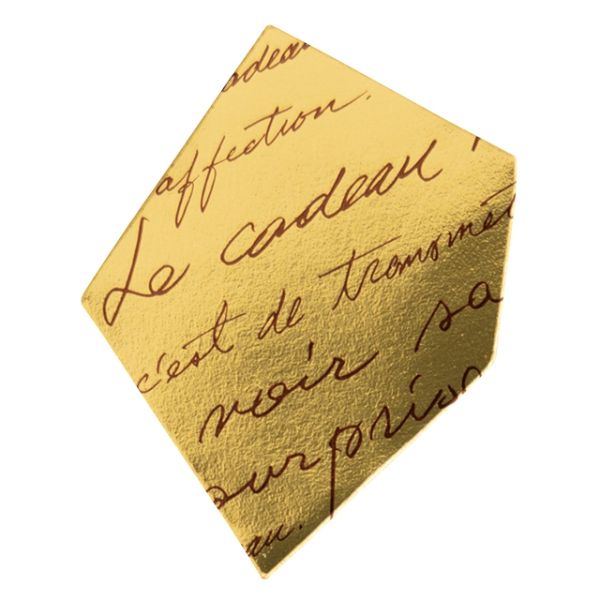 cadeau
affection.
Le cadeau
c'est de transmet
voir sa
surprise
au.